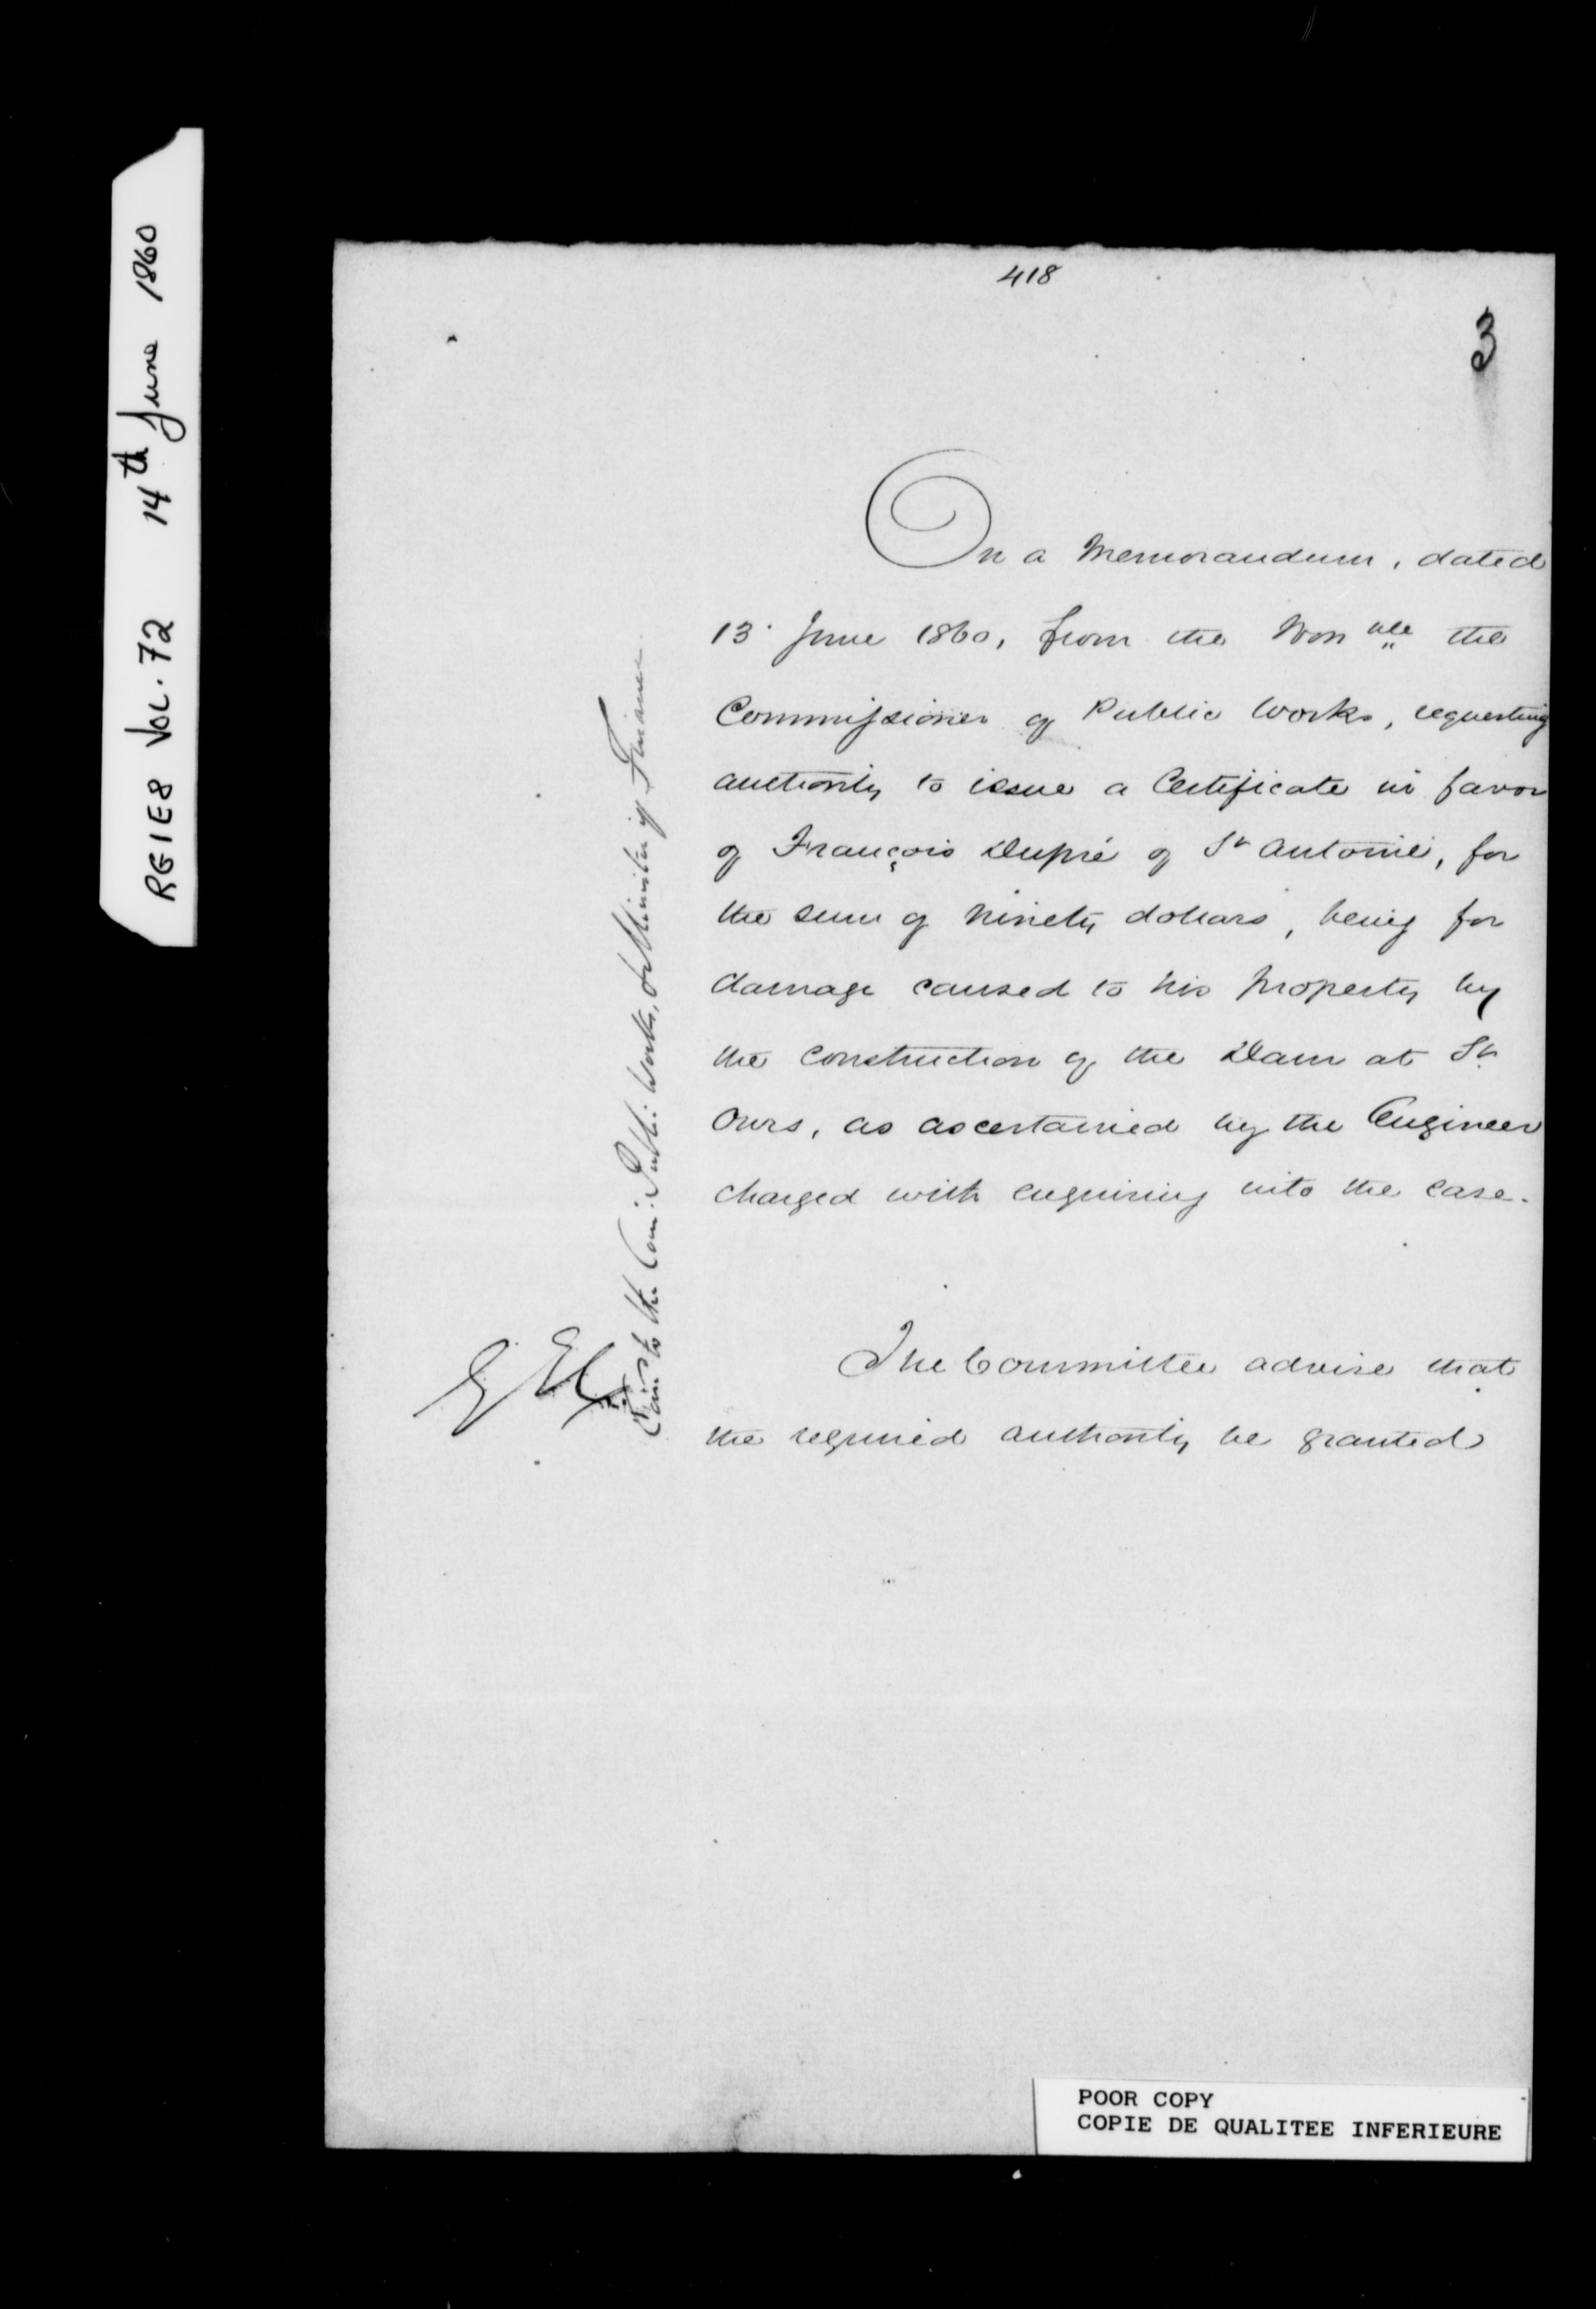 RG1E8 Vol. 72 14th June 1860
418
3
On a Memorandum, dated
13 June 1860, from the Honble the
Commissioner of Public Works, requesting
authority to issue a Certificate in favor
of François Dupré of St Antoine, for
the sum of ninety dollars, being for
damage caused to his property by
the construction of the Dam at St
Ours, as ascertained by the Engineer
charged with enquiring into the case.
The Committee advise that
the required authority be granted
to the Com: Public Works, & Minister of Finance
POOR COPY
COPIE DE QUALITEE INFERIEURE